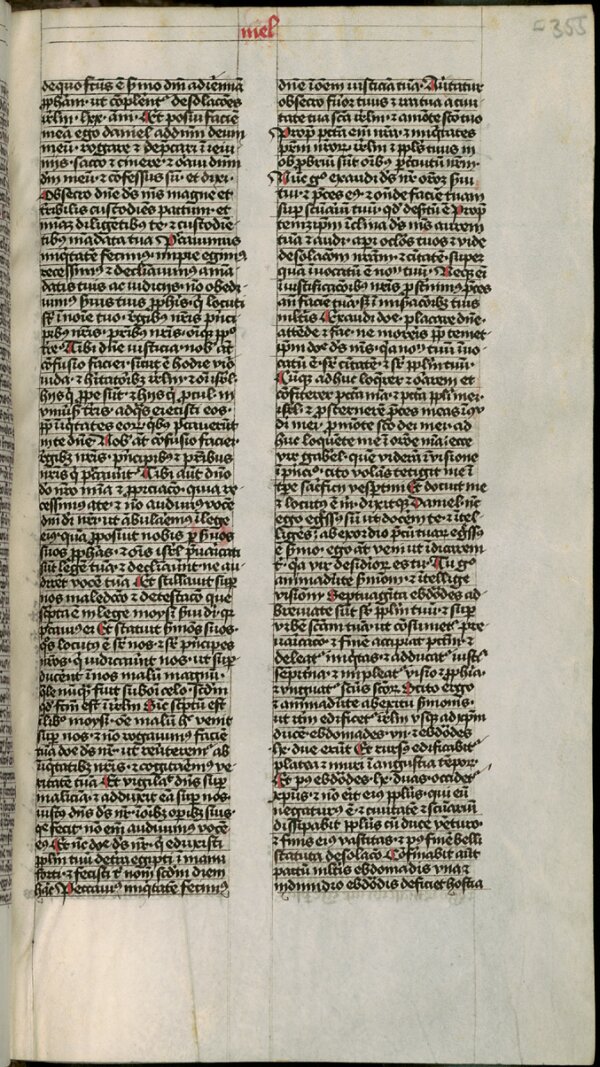 niel
355
de quo fcūs ē ẜmo dñi ad ieremiā
ꝓphām · ut cōplerent᷑ desolacōes
irl̄m · lxx · añi · Et posui faciē
meā ego daniel ad dñm deum
meū · rogare ⁊ dep̄cari ī ieiu
niis · sacco ⁊ cinere · ⁊ oraui dñm
dm̄ meū · ⁊ cōfessus sū · et dixi ·
Obsecro dñe ds̄ magne et
t̄ribilis custodiēs pactum · et
mīaz diligētibꝫ te · ⁊ custodiē
tibꝫ mādata tua Peccauimus
iniq̄tatē fecimꝰ · impie egimꝰ
recessimꝰ ⁊ declinauimꝰ a mā
datis tuis ac iudiciis · nō obedi
uimꝰ ẜuis tuis ꝓphis · q̄ locuti
sūt ī noīe tuo · regibꝫ nr̄is p̄nci
pibꝫ nr̄is · p̄ribꝫ nr̄is · oīqꝫ ppl̄o
tr̄e · Tibi dñe iusticia · nob̄ aūt
cōfusio faciei · sicut ē hodie uiro
iuda · ⁊ hītatoribꝫ irl̄m · ⁊ oī isrl̄ ·
hiis q̄ ꝓpe sūt · ⁊ hiis q̄ ꝓcul · in
vniuersis tr̄is · ad q̄s eiecisti eos ·
ꝓp̄ iniq̄tates eoꝝ · qibꝫ peccauerūt
in te dñe · Nob̄ aūt cōfusio faciei ·
regibꝫ nr̄is · p̄ncipibꝫ ⁊ p̄ribus
nr̄is q̄ peccarūt · Tibi aūt dño
do nr̄o mīa ⁊ ꝓpiciacō · quia re
cessimꝰ a te · ⁊ nō audiuimꝰ vocē
dñi di nr̄i · ut ābularemꝰ ī lege
eiꝰ · quā ꝓposuit nobis ꝑ ẜuos
suos ꝓphās · ⁊ oīs isrl̄ p̄uaricati
sūt legē tuā · ⁊ declinauer̄t ne au
dirēt vocē tuā Et stillauit suꝑ
nos maledcō · ⁊ detestacō que
sc̄pta ē in lege moysi ẜui di · qꝛ
peccauimꝰ ei Et statuit ẜmōes suos ·
q̄s locutꝰ ē suꝑ nos · ⁊ suꝑ p̄ncipes
nr̄os · q̄ iudicauerūt nos · ut suꝑ
ducerēt in nos malū magnū ·
q̄le nūq̄ fuit sub oī celo · scd̄m
qd̄ fcm̄ est ī irl̄m Sic sc̄ptū est
ī libō moysi · oē malū h̄ venit
suꝑ nos · ⁊ nō rogauimꝰ faciē
tuā dñe ds̄ nr̄ · ut reuerterem᷑ ab
iniq̄tatibꝫ nr̄is · ⁊ cogitarēmꝰ ve
ritatē tuā Et vigilauit dñs suꝑ
maliciā · ⁊ adduxit eā suꝑ nos ·
iustꝰ dñs ds̄ nr̄ · ī oībꝫ oꝑibꝫ suis ·
q̄ fecit · nō em̄ audiuimꝰ vocē
eiꝰ Et nūc dñe ds̄ nr̄ · q̄ eduxisti
ppl̄m tuū de t̄ra egipti ī manu
forti · ⁊ fecisti t̄ nomen scd̄m diem
hāc Peccauimꝰ iniq̄tatē fecimꝰ
dñe ī oēm iusticiā tuā · Auertatur
obsecro furor tuus ⁊ ira tua a ciui
tate tua sc̄a irl̄m · ⁊ mōte sc̄o tuo
Propt̄ pccā em̄ nr̄a · ⁊ iniq̄tates
pr̄m nr̄oꝝ · irl̄m ⁊ ppl̄s tuus in
obꝓbriū sūt oībꝫ ꝑ circuitū nr̄m ·
Nūc g̊ exaudi ds̄ nr̄ orōeꝫ ẜui
tui · ⁊ p̄ces eiꝰ · ⁊ ostende faciē tuam
suꝑ sc̄uariū tuū · qd̄ desertū ē Propt̄
temetip̄m inclina ds̄ ms̄ aurem
tuā ⁊ audi · aꝑi oclōs tuos ⁊ vide
desolacōem nr̄am · ⁊ citatē · super
quā īuocatū ē nomē tuū · Neqꝫ em̄
ī iustificacōibꝫ nr̄is ꝓsternimꝰ p̄ces
añ faciē tuā · sꝫ in misacōibꝫ tuis
mltīs Exaudi dñe · placare dñe ·
attēde ⁊ fac · ne moreris ꝓpt̄ temet
ip̄m dñe ds̄ ms̄ · qa nomē tuū īuo
catū ē · suꝑ citatē · ⁊ suꝑ ppl̄m tuū ·
Cūqꝫ adhuc loqrer · ⁊ orarem et
cōfiterer pccā mea · ⁊ pccā ppl̄i mei ·
isrl̄ · ⁊ ꝓsternerē p̄ces meas ī ꝯspectu
di mei · ꝓ mōte sc̄o dei mei · ad
huc loquēte me ī orōne mai ecce
vir gabriel · quē viderā ī visione
ī p̄ncipio · cito volās tetigit me ī
tp̄e sac̄ficii vesꝑtini Et docuit me
⁊ locutꝰ ē m̄ · dixitqꝫ Daniel · nūc
ego egressꝰ sū ut docerē te · ⁊ ītel
ligeres ab exordio p̄cū tuaꝝ egressꝰ
ē ẜmo · ego aūt veni ut īdicarem
t̄ · qa vir desideriorum es · tu Tu g̊
animaduerte ẜmonem · ⁊ ītellige
visionē · Septuagīta ebdōdes ad
breuiate sūt suꝑ ppl̄m tuū · ⁊ suꝑ
vrbē scam̄ tuā · ut cōsumet᷑ p̄e
uaricacō · ⁊ finē accipiat pctm̄ · ⁊
deleat᷑ iniq̄tas · ⁊ adducat᷑ iusticia
sempitna · ⁊ impleat᷑ visio · ⁊ ꝓphīa ·
⁊ vngatur scūs scōꝝ Scito ergo
⁊ animaduerte ab exitu ẜmonis ·
ut itm edificet᷑ irl̄m vsqꝫ ad xp̄m
ducē ebdomades · vii · ⁊ ebdōdes
lx · due erūt Et rursꝰ edificabit᷑
platea ⁊ muri ī angustia tēpoꝝ ·
Et pꝰ ebdōdes lx · duas · occidet᷑
xp̄us · ⁊ nō erit eiꝰ ppl̄us · qui eū
negaturꝰ ē · ⁊ ciuitatē ⁊ sc̄uariū
dissipabit ppl̄us cū duce vēturo ·
⁊ finis eiꝰ vastitas · ⁊ pꝰ finē belli
statuta desolacō Cōfirmabit aūt
pactū mltīs ebdomadis vna · ⁊
in dimidio ebdōdis deficiet hostia